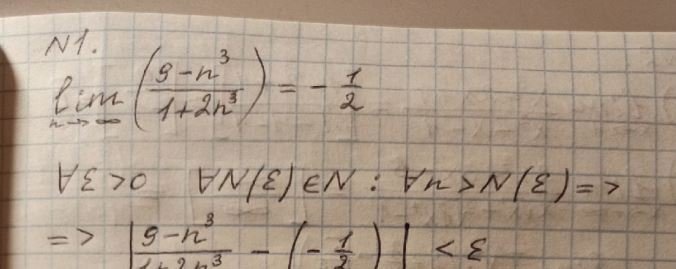 N1.
lim n→∞ ((9-n³)/(1+2n³)) = -1/2
∀ε>0 ∃N(ε)∈N : ∀n>N(ε) =>
=> |(9-n³)/(1+2n³) - (-1/2)| < ε